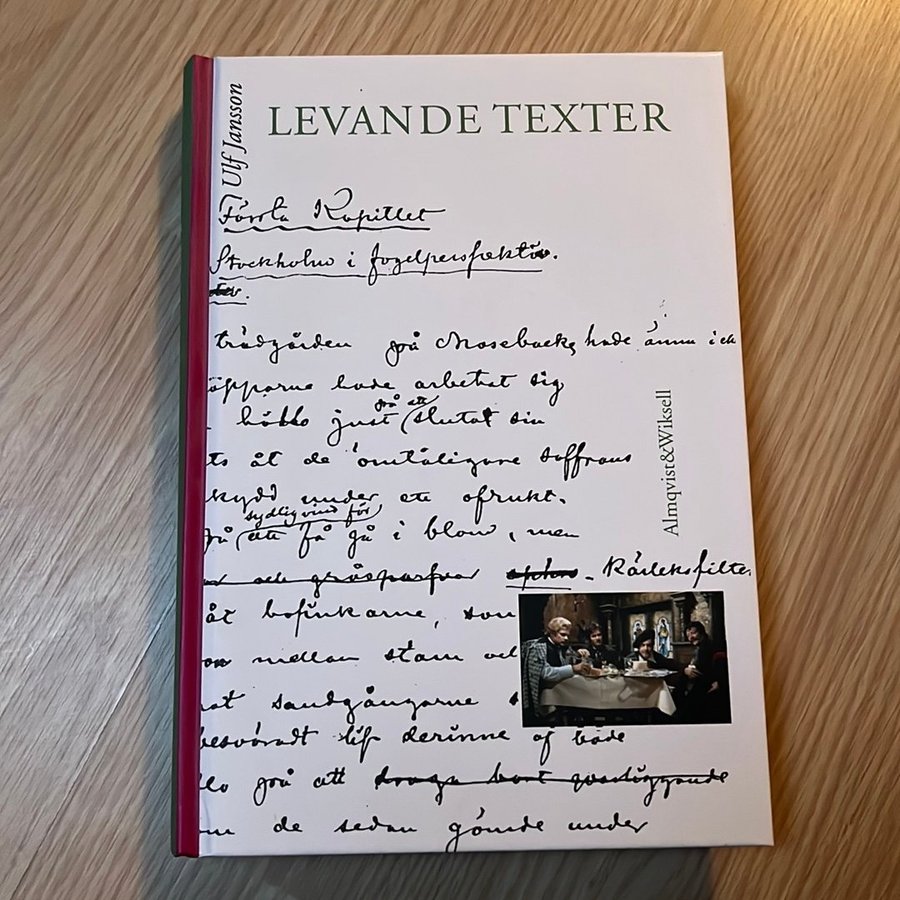 Ulf Jansson
LEVANDE TEXTER
Första Kapitlet
Stockholm i fogelperspektiv.
trädgården på Mosebacke hade ännu ick
öpparne hade arbetat sig
höllo just på att slutat sin
ts åt de ömtåligare saffrans
kydd under ett ofrukt.
sydlig vind för
på att få gå i blom, men
Kärleksfilte
åt bofinkarne, som
on mellan stam och
at sandgångarne s
besväradt lif derinne af både
lo på att draga bort
om de sedan gömde under
Almqvist&Wiksell